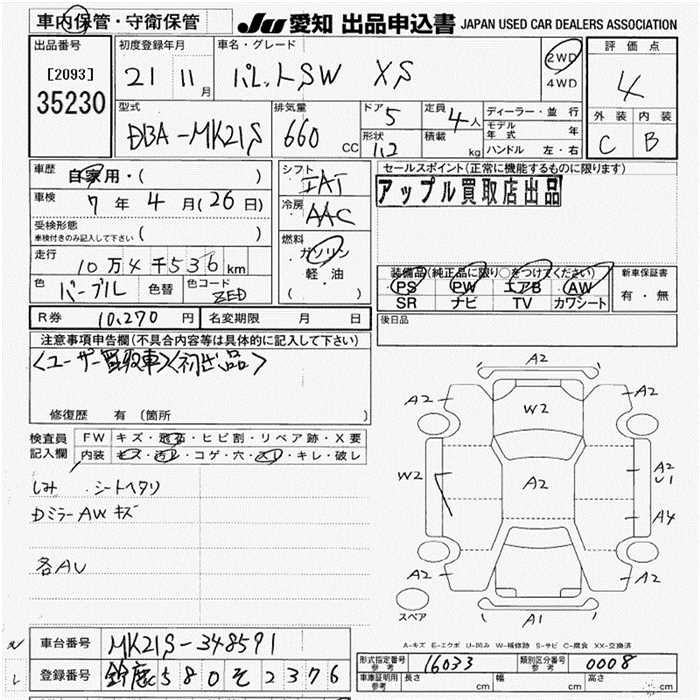 車内保管・守衛保管
JU 愛知 出品申込書 JAPAN USED CAR DEALERS ASSOCIATION
出品番号
[2093]
35230
初度登録年月
21 11月
車名・グレード
パレットSW XS
2WD
4WD
評価点
4
外装 内装
C B
型式
DBA-MK21S
排気量
660 cc
ドア 5
形状
定員 4人
積載 kg
ディーラー・並行
モデル年式 年
ハンドル 左・右
車歴 自家用・( )
車検 7年 4月(26日)
受検形態
車検付きのみ記入して下さい ( )
走行
10万4千536km
色 パープル 色替 色コード ZED
シフト IAT
冷房 AAC
燃料
ガソリン
軽油
( )
セールスポイント(正常に機能するものに限ります)
アップル買取店出品
装備品(純正品に限り○をつけてください)
PS PW エアB AW
SR ナビ TV カワシート
新車保証書
有・無
R券 10,270円 名変期限 月 日
後日品
注意事項申告欄(不具合内容等は具体的に記入して下さい)
<ユーザー買取車><初出品>
修復歴 有 (箇所
検査員記入欄
FW キズ・飛石・ヒビ割・リペア跡・X要
内装 キズ・汚レ・コゲ・穴・スレ・キレ・破レ
しみ シートヘタリ
DミラーAWキズ
各AU
A2
A2 W2 A2
W2 A2 A2
U1
A4
A2 A2
スペア A1
A-キズ E-エクボ U-凹み W-補修跡 S-サビ C-腐食 XX-交換済
車台番号 MK21S-348591
登録番号 鈴鹿 580 そ 2376
型式指定番号 参考 16033
類別区分番号 参考 0008
車庫証明用 参考 長さ cm 幅 cm 高さ cm